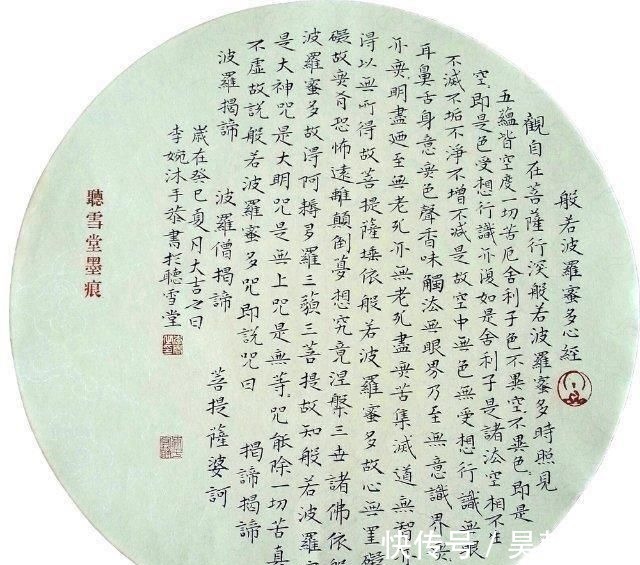 般若波羅蜜多心經
觀自在菩薩行深般若波羅蜜多時照見
五蘊皆空度一切苦厄舍利子色不異空不異色即是
空即是色受想行識亦復如是舍利子是諸法空相不生
不滅不垢不淨不增不減是故空中無色無受想行識無眼
耳鼻舌身意無色聲香味觸法無眼界乃至無意識界無
亦無明盡廼至無老死亦無老死盡無苦集滅道無智亦
得以無所得故菩提薩埵依般若波羅蜜多故心無罣礙
礙故無有恐怖遠離顛倒夢想究竟涅槃三世諸佛依般
波羅蜜多故得阿耨多羅三藐三菩提故知般若波羅
是大神咒是大明咒是無上咒是無等咒能除一切苦真
不虛故說般若波羅蜜多咒即說咒曰 揭諦揭諦
波羅揭諦 波羅僧揭諦 菩提薩婆訶
歲在癸巳夏月大吉之日
李婉沐手恭書於聽雪堂
聽雪堂墨痕
快传号/吴